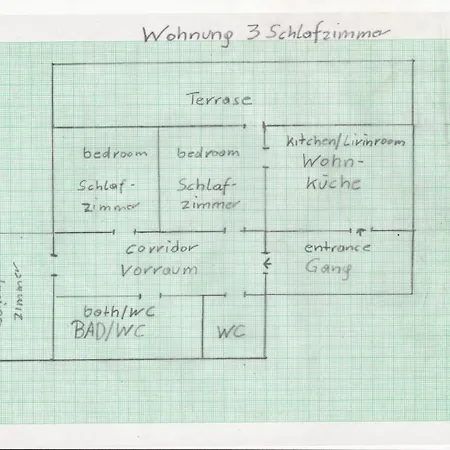 Wohnung 3 Schlafzimmer
Terrase
bedroom
Schlaf-
zimmer
bedroom
Schlaf-
zimmer
Kitchen/Livinroom
Wohn-
küche
corridor
Vorraum
entrance
Gang
both/WC
BAD/WC
WC
zimmer